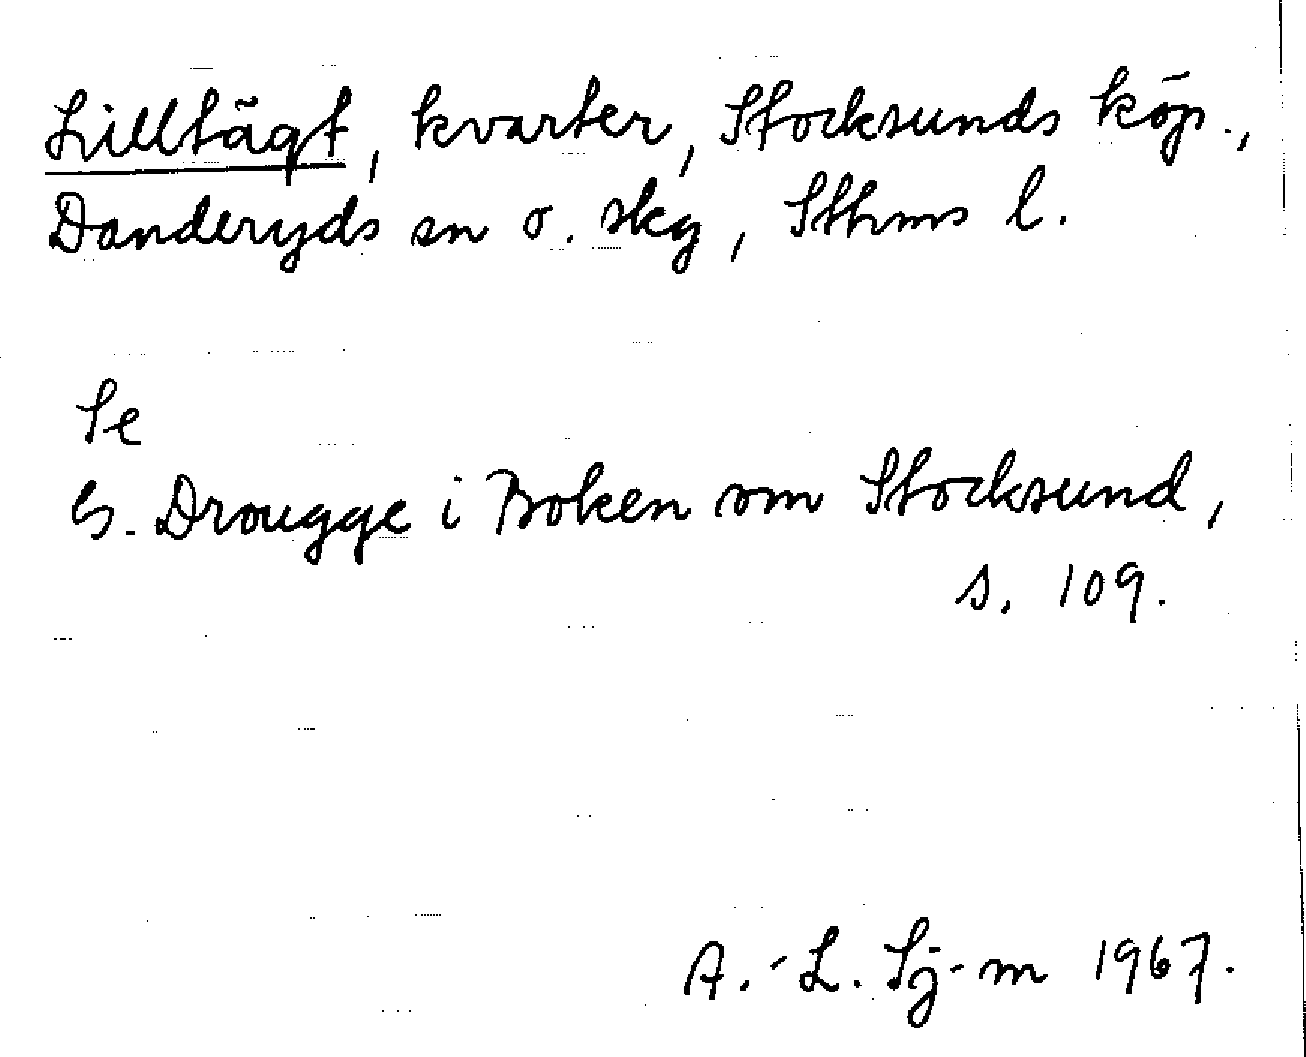 Lilltägt, kvarter, Stocksunds köp.,
Danderyds sn o. skg, Sthms l.
Se
G. Drougge i Boken om Stocksund,
s. 109.
A.-L. Sj-m 1967.